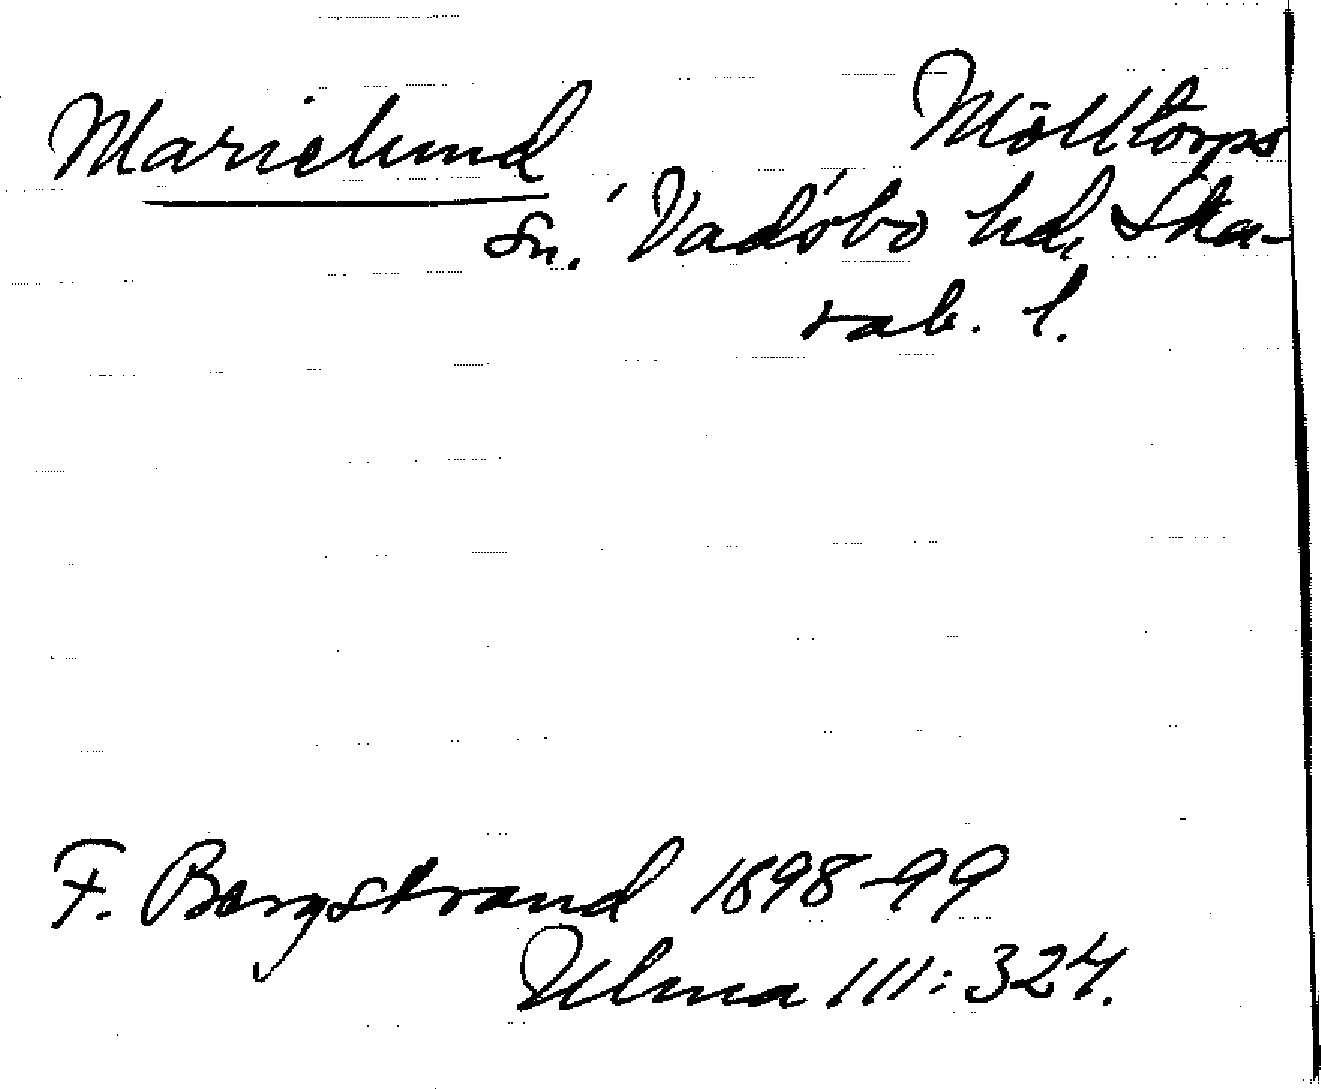 Marielund Mölltorps
sn. Vadsbo hd, Ska-
rab. l.
F. Bergstrand 1898-99
Ulma 111:324.